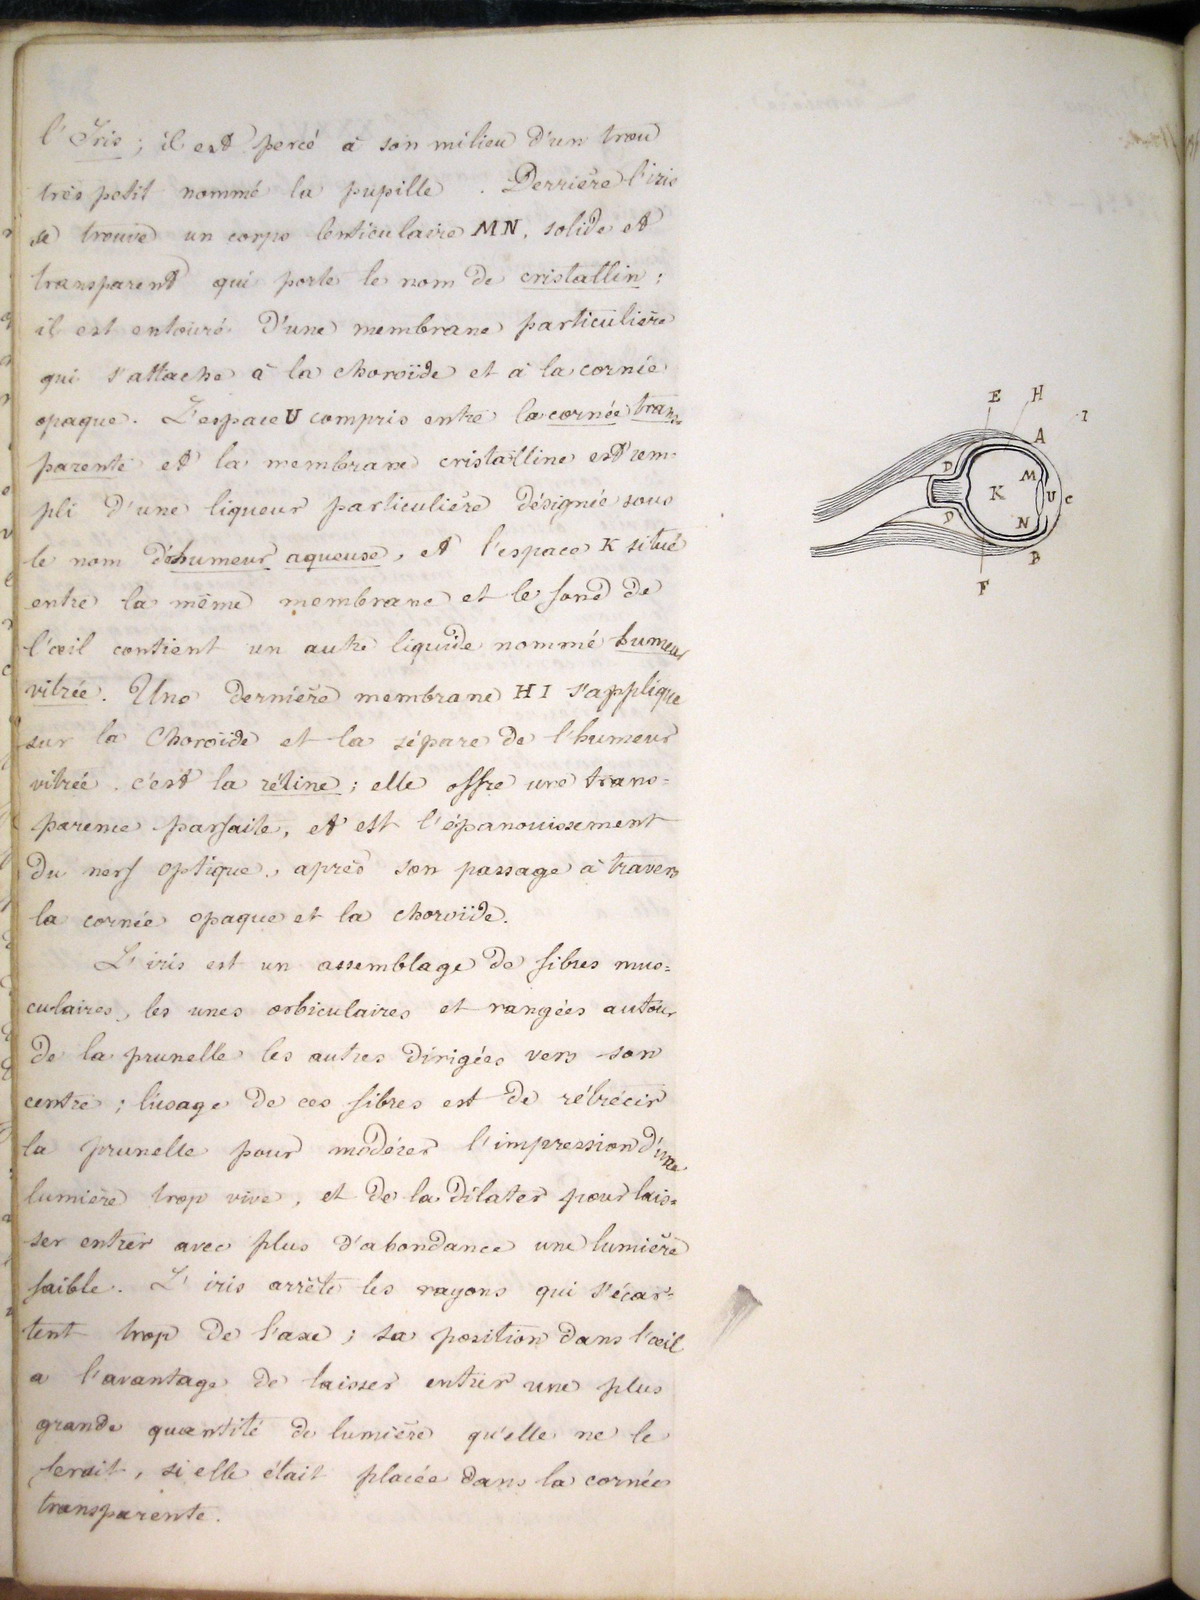 l'Iris ; il est percé à son milieu d'un trou
très petit nommé la pupille . Derrière l'iris
se trouve un corps lenticulaire MN, solide et
transparent qui porte le nom de cristallin ;
il est entouré d'une membrane particulière
qui s'attache à la choroïde et à la cornée
opaque. L'espace U compris entre la cornée trans-
parente et la membrane cristalline est rem-
pli d'une liqueur particulière désignée sous
le nom d'humeur aqueuse, et l'espace K situé
entre la même membrane et le fond de
l'œil contient un autre liquide nommé humeur
vitrée. Une dernière membrane HI s'applique
sur la choroïde et la sépare de l'humeur
vitrée . c'est la rétine ; elle offre une trans=
parence parfaite, et est l'épanouissement
du nerf optique, après son passage à travers
la cornée opaque et la choroïde.
L'iris est un assemblage de fibres mus=
culaires, les unes orbiculaires et rangées autour
de la prunelle les autres dirigées vers son
centre ; l'usage de ces fibres est de rétrécir
la prunelle pour modérer l'impression d'une
lumière trop vive, et de la dilater pour lais=
ser entrer avec plus d'abondance une lumière
faible. L'iris arrête les rayons qui s'écar=
tent trop de l'axe ; sa position dans l'œil
a l'avantage de laisser entrer une plus
grande quantité de lumière qu'elle ne le
ferait, si elle était placée dans la cornée
transparente.
E H I
A
D M
K U C
D N
B
F